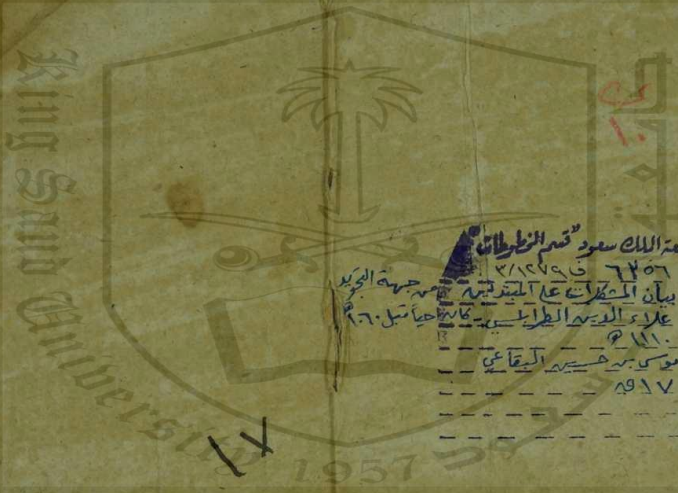 King Saud University
1957
ك
١٠
الملك سعود قسم المخطوطات
٦٣٥٦ ف ٣/١٢٧٩
بيان المشكلات على المبتدئين من جهة التجويد
علاء الدين الطرابلسي - كان حيا قبل ١٠٦٠هـ
١١١٠هـ
موسى بن حسين البقاعي
١٧ق
١٧